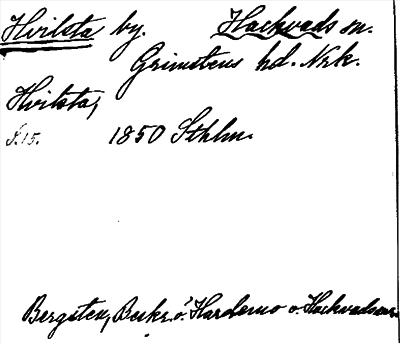 Hvilsta by. Hackvads sn.
Grimstens hd. Nrk.
Hvilsta,
s. 15. 1850 Sthlm.
Bergsten, Beskr. ö. Hardemo o. Hackvads snr.